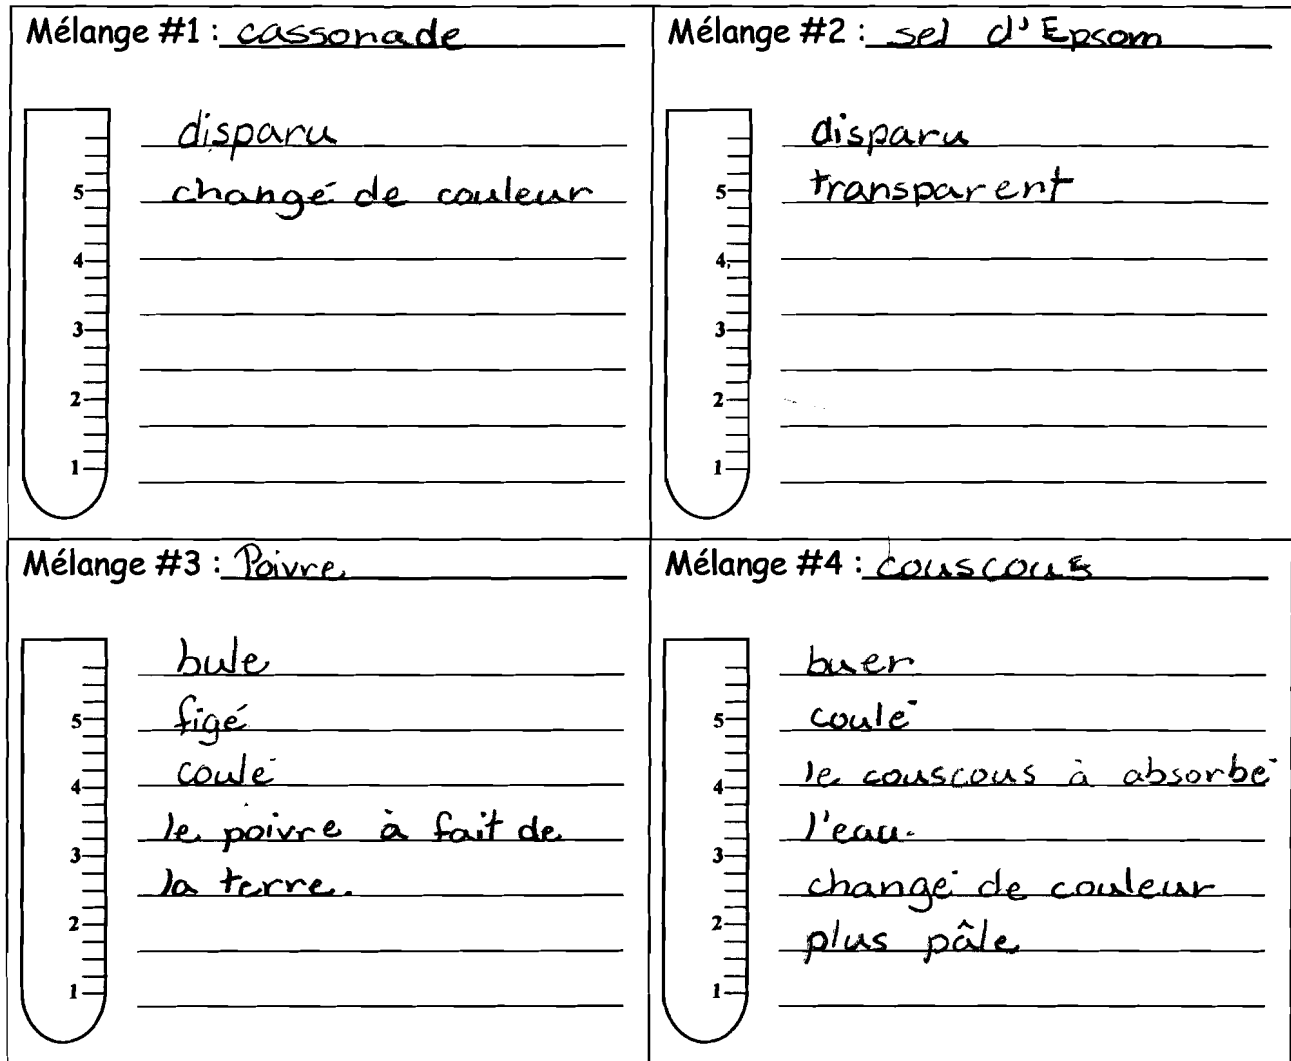 Mélange #1 : cassonade
disparu
changé de couleur
5
4
3
2
1
Mélange #2 : sel d'Epsom
disparu
transparent
5
4
3
2
1
Mélange #3 : Poivre
bule
figé
coulé
le poivre à fait de
la terre.
5
4
3
2
1
Mélange #4 : couscous
buer
coulé
le couscous à absorbé
l'eau.
changé de couleur
plus pâle
5
4
3
2
1